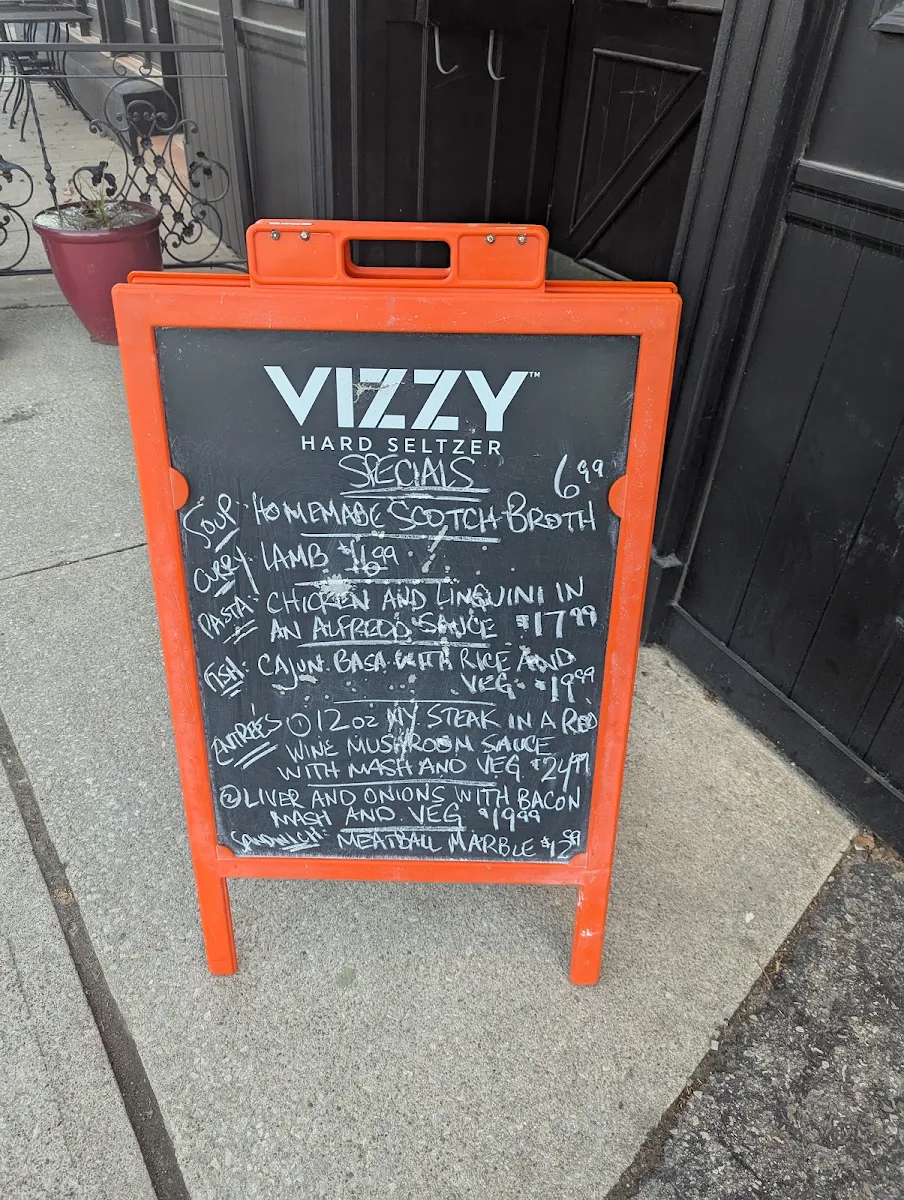 VIZZY™
HARD SELTZER
SPECIALS 6.99
SOUP: HOMEMADE SCOTCH BROTH
CURRY: LAMB
PASTA: CHICKEN AND LINGUINI IN
AN ALFREDO SAUCE $17.99
FISH: CAJUN BASA WITH RICE AND
VEG $19.99
ENTREÉS ① 12 OZ NY STEAK IN A RED
WINE MUSHROOM SAUCE
WITH MASH AND VEG $24.99
② LIVER AND ONIONS WITH BACON
MASH AND VEG $19.99
SANDWICH: MEATBALL MARBLE